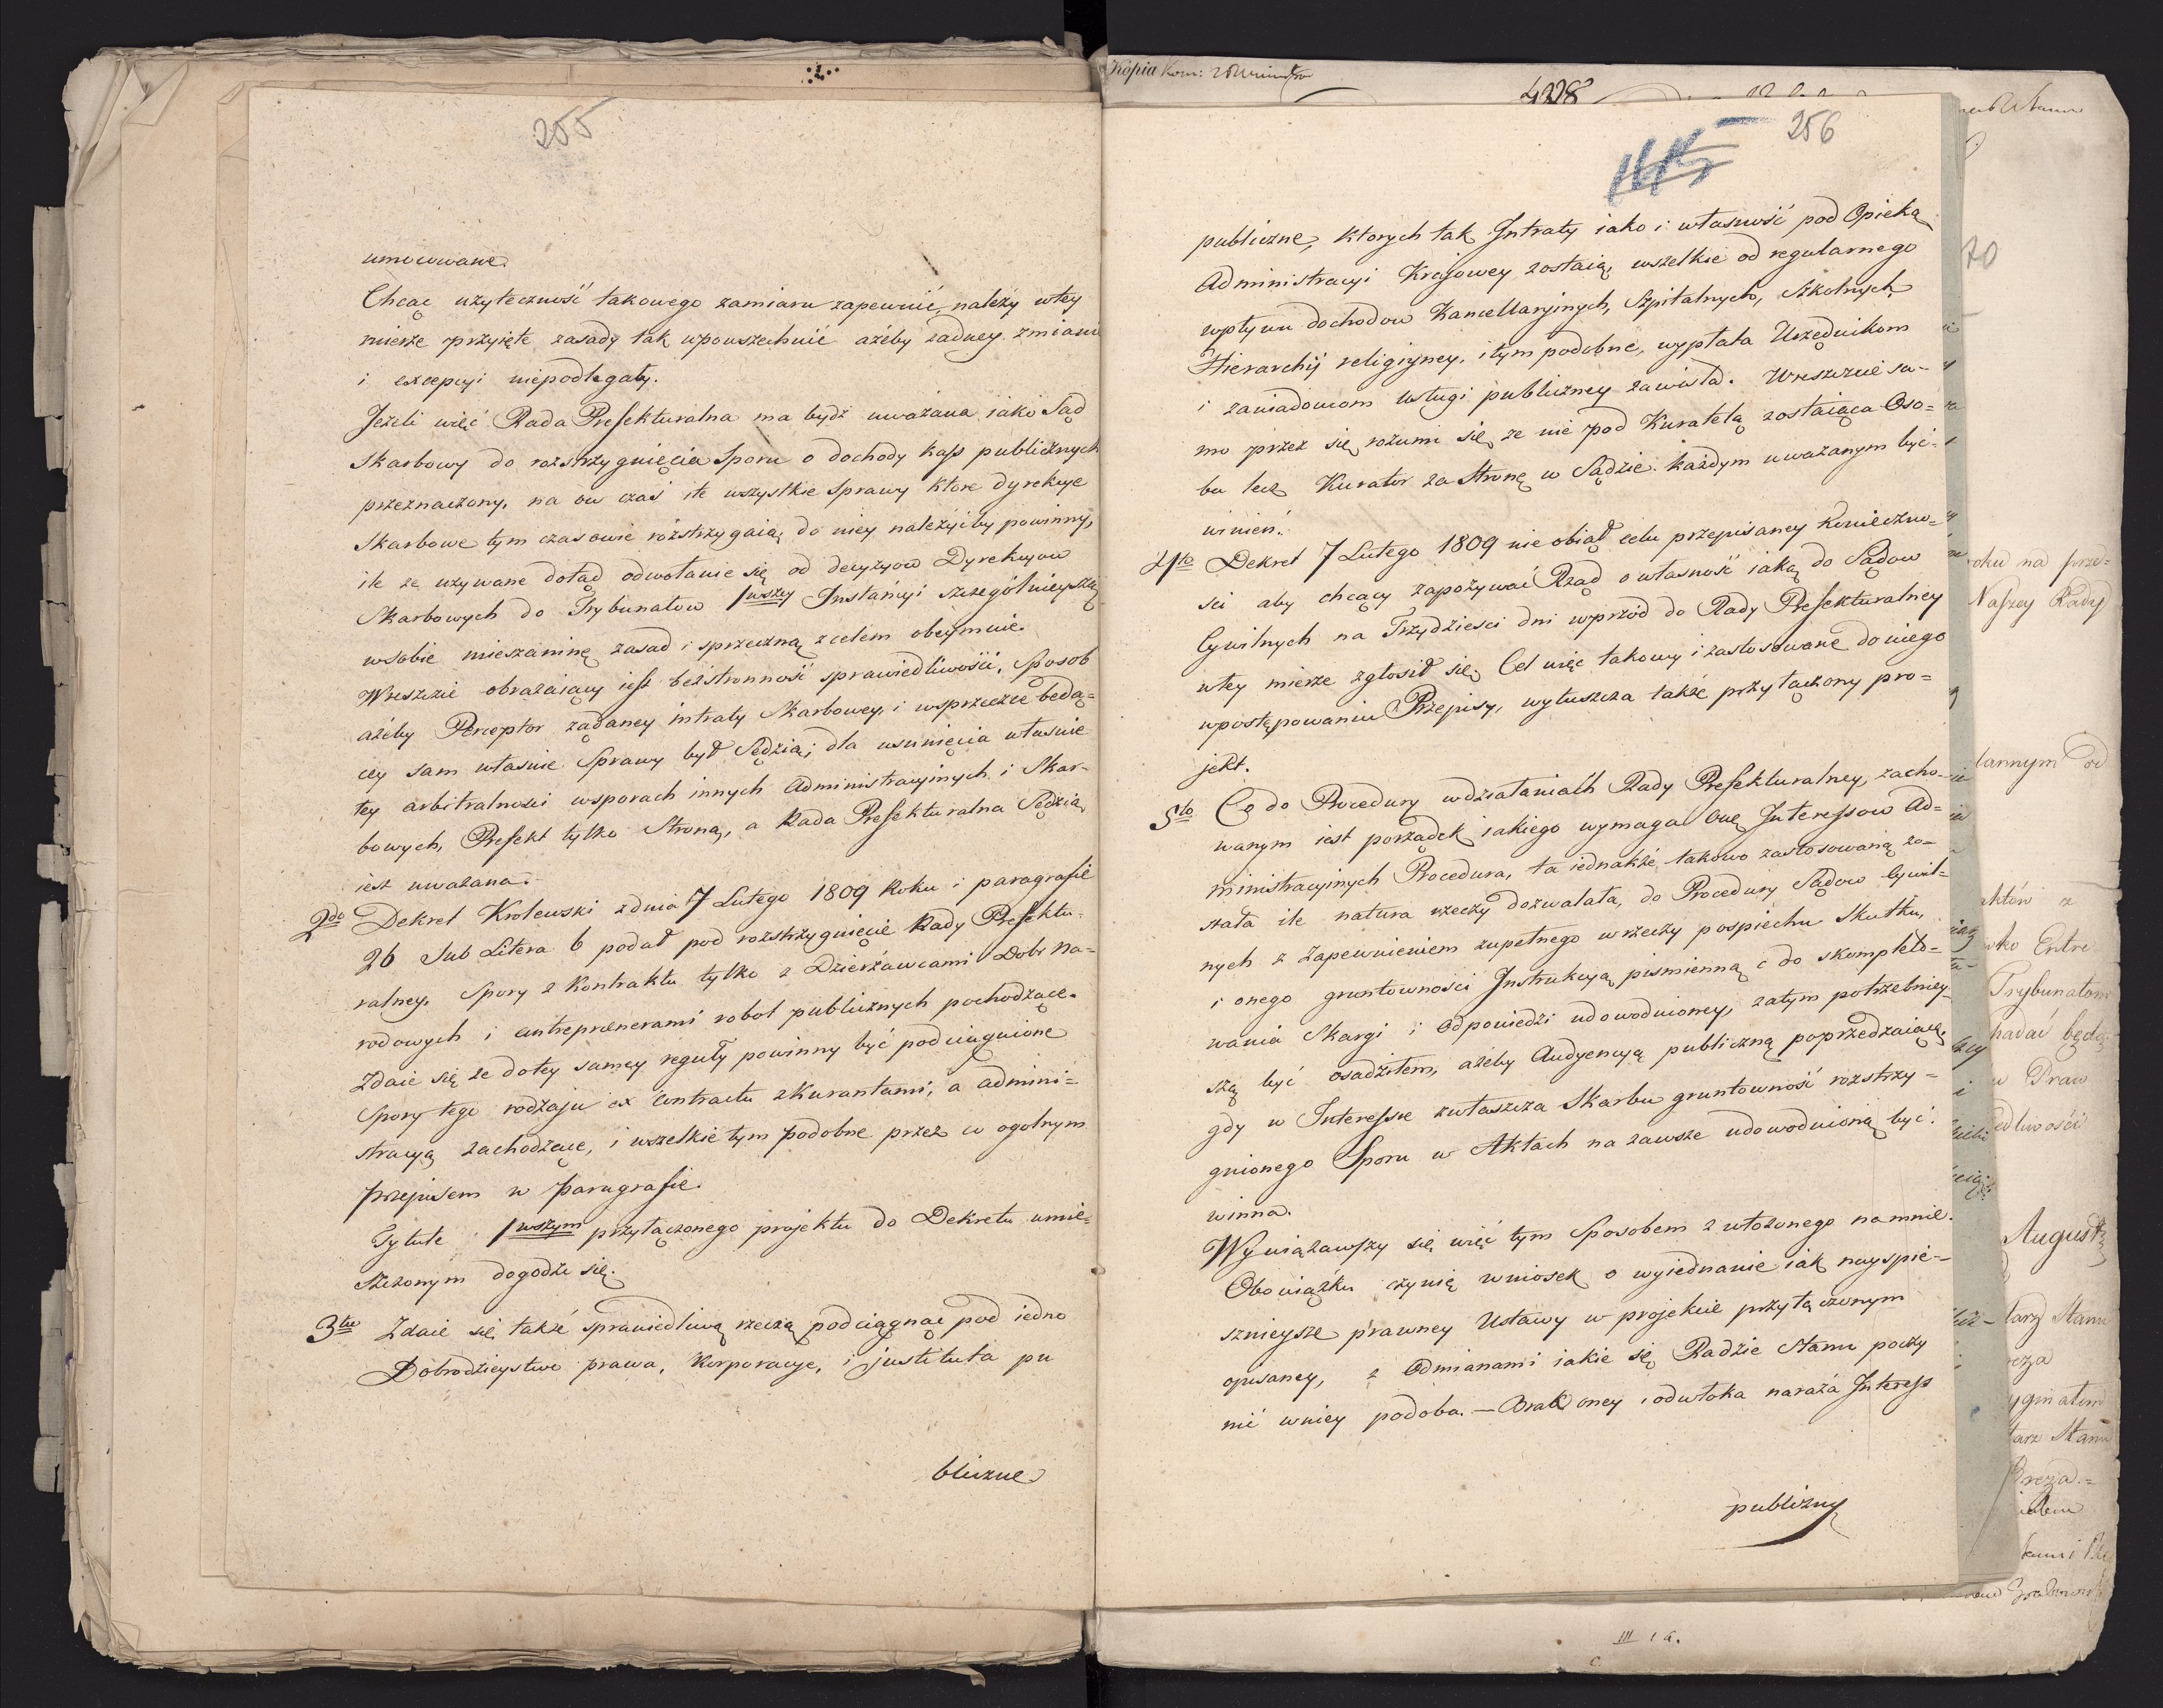 255
umocowane.
Chcąc użyteczność takowego zamiaru zapewnić, należy w tey
mierze przyięte zasady tak upowszechnić ażeby żadney zmianie
i excepcyi niepodlegały.
Jeżeli więc Rada Prefekturalna ma bydź uważana iako Sąd
Skarbowy do rozstrzygnięcia Sporu o dochody kass publicznych
przeznaczony, na ow czas ile wszystkie Sprawy ktore dyrekcye
Skarbowe tym czasowie rozstrzygaią, do niey należyćby powinny,
ile że używane dotąd odwołanie się od decyzyow Dyrekcyow
Skarbowych do Trybunałow 1wszey Instancyi szczególnieyszą
w sobie mieszaninę zasad i sprzeczną z celem obeymuie.
Wreszcie obrażaiący iest bezstronność sprawiedliwości, Sposob
ażeby Perceptor żądaney intraty Skarbowey, i w sprzeczce będą=
cey sam własnie Sprawy był Sędzią; dla usunięcia własnie
tey arbitralności w sporach innych Administracyinych i Skar-
bowych, Prefekt tylko Stroną, a Rada Prefekturalna Sędzią
iest uważana.
2do Dekret Krolewski z dnia 7 Lutego 1809 Roku i paragrafie
26 Sub Litera b podał pod rozstrzygnięcie Rady Prefektu-
ralney. Spory z Kontraktu tylko z Dzierżawcami Dobr Na-
rodowych i entreprenerami robot publicznych pochodzące.
Zdaie się że do tey samey reguły powinny być podciągnione
Spory tego rodzaju ex Contractu z Kurantami, a admini=
stracyą zachodzące, i wszelkie tym podobne przez w ogolnym
przepisem w paragrafie.
Tytule 1wszym przyłączonego projektu do Dekretu umie=
szczonym dogodzi się.
3tio Zdaie się także sprawiedliwą rzeczą podciągnąć pod iedno
Dobrodzieystwo prawa, Korporacye, i justituta pu
bliczne
Kopia
4228
256
publiczne, ktorych tak Intraty iako i własność pod Opieką
Administracyi Krajowey zostaią, wszelkie od regularnego
wpływu dochodow Kancellaryinych, Szpitalnych, Szkolnych,
Hierarchij religiyney, i tym podobne, wypłata Urzędnikom
i zawiadowcom usługi publiczney zawisła. Wreszcie sa-
mo przez się rozumi się że nie pod Kuratelą zostaiąca Oso-
ba lecz Kurator za Stronę w Sądzie każdym uważanym być
winien.
4to Dekret 7 Lutego 1809 nie obiął celu przepisaney Konieczno=
ści aby chcący zapozywać Rząd o własność iaką do Sądow
Cywilnych na Trzydzieści dni wprzod do Rady Prefekturalney
w tey mierze zgłosił się. Cel więc takowy i zastosowane do niego
w postępowaniu Przepisy, wyłuszcza także przyłączony pro=
jekt.
5to Co do Procedury w działaniach Rady Prefekturalney, zacho-
wanym iest porządek iakiego wymaga Interessow Ad=
ministracyinych Procedura, ta iednakże takowo zastosowaną zo-
stała ile natura rzeczy dozwalała, do Procedury Sądow Cywil=
nych z zapewnieniem zupełnego w rzeczy pospiechu Skutku,
i onego gruntowności Instrukcyą pismienną c do skompleto=
wania Skargi i Odpowiedzi udowodnioney, zatym potrzebniey-
szą być osadziłem, ażeby Audyencyą publiczną poprzedzaiącą,
gdy w Interessie zwłaszcza Skarbu gruntowność rozstrzy=
gnionego Sporu w Aktach na zawsze udowodnioną być
winna.
Wywiązawszy się więc tym Sposobem z ułożonego na mnie
Obowiązku czynię wniosek o wyiednanie iak nayspie-
sznieysze prawney Ustawy w projekcie przyłączonym
opisaney, z Odmianami iakie się Radzie Stanu poczy
nić w niey podoba. — Brak oney i odwłoka naraża Interess
publiczny
70
roku na prze=
Naszey Rady
Entre
Trybunałom
badać będą
w Praw
August
Stanu
III 1 a.